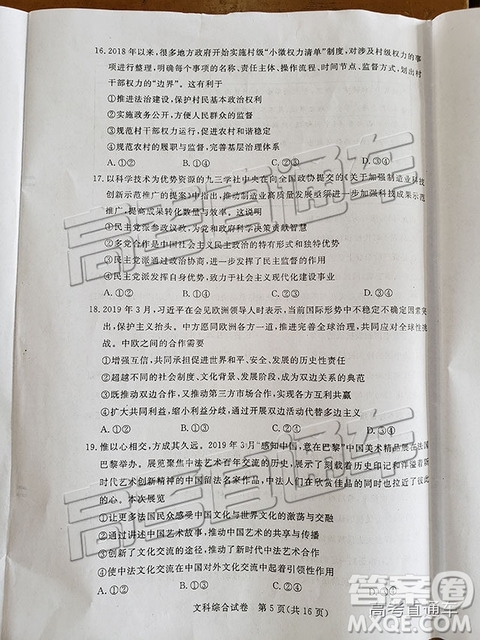 16. 2018年以来,很多地方政府开始实施村级“小微权力清单”制度,对涉及村级权力的事
项进行整理,明确每个事项的名称、责任主体、操作流程、时间节点、监督方式,划出村
干部权力的“边界”。这有利于
①推进法治建设,保护村民基本政治权利
②实施政务公开,方便人民群众的监督
③规范村干部权力运行,促进农村和谐稳定
④规范农村的履职与监督,完善基层治理体系
A. ①② B. ①③ C. ②④ D. ③④
17. 以科学技术为优势资源的九三学社中央在向全国政协提交的《关于加强制造业科技
创新示范推广的提案》中指出,推动制造业高质量发展亟须进一步加强科技成果示范
推广,提高成果转化数量与效率。这说明
①民主党派参政议政,为党和政府科学决策贡献智慧
②多党合作是中国社会主义民主政治的特有形式和独特优势
③民主党派通过政治协商,进一步发挥了民主监督的作用
④民主党派发挥自身优势,致力于社会主义现代化建设事业
A. ①② B. ①④ C. ②③ D. ③④
18. 2019年3月,习近平在会见欧洲领导人时表示,当前国际形势中不稳定不确定因素突
出,保护主义抬头。中方愿同欧洲各方一道,推进完善全球治理,共同应对全球性挑
战。中欧之间的合作需要
①增强互信,共同承担促进世界和平、安全、发展的历史性责任
②超越不同的社会制度、文化背景、发展阶段,成为双边关系的典范
③互利双赢,推动双方合作,推动第三方市场合作,实现各方互利共赢
④扩大共同利益,缩小利益分歧,通过开展双边活动代替多边主义
A. ①② B. ①③ C. ②④ D. ③④
19. 惟以心相交,方成其久远。2019年3月“感知中国,意在巴黎”中国美术精品展在法国
巴黎举办。展览聚焦中法艺术百年交流的历史,展示了刻载着历史印记和洋溢着新
时代艺术创新精神的中国留法名家作品,中法人们在欣赏佳品的同时也拉近了彼此
的心。本次展览
①让更多法国民众感受中国文化与世界文化的激荡与交融
②通过讲述中国艺术故事,推动中国艺术的共享与传播
③创新了文化交流的途径,推动了新时代中法艺术合作
④使中法文化交流在中国对外文化交流中起着引领性作用
A. ①② B. ①③ C. ②④ D. ③④
文科综合试卷 第5页(共16页)
高考直通车
高考直通车
高考直通车
答案圈
高考直通车